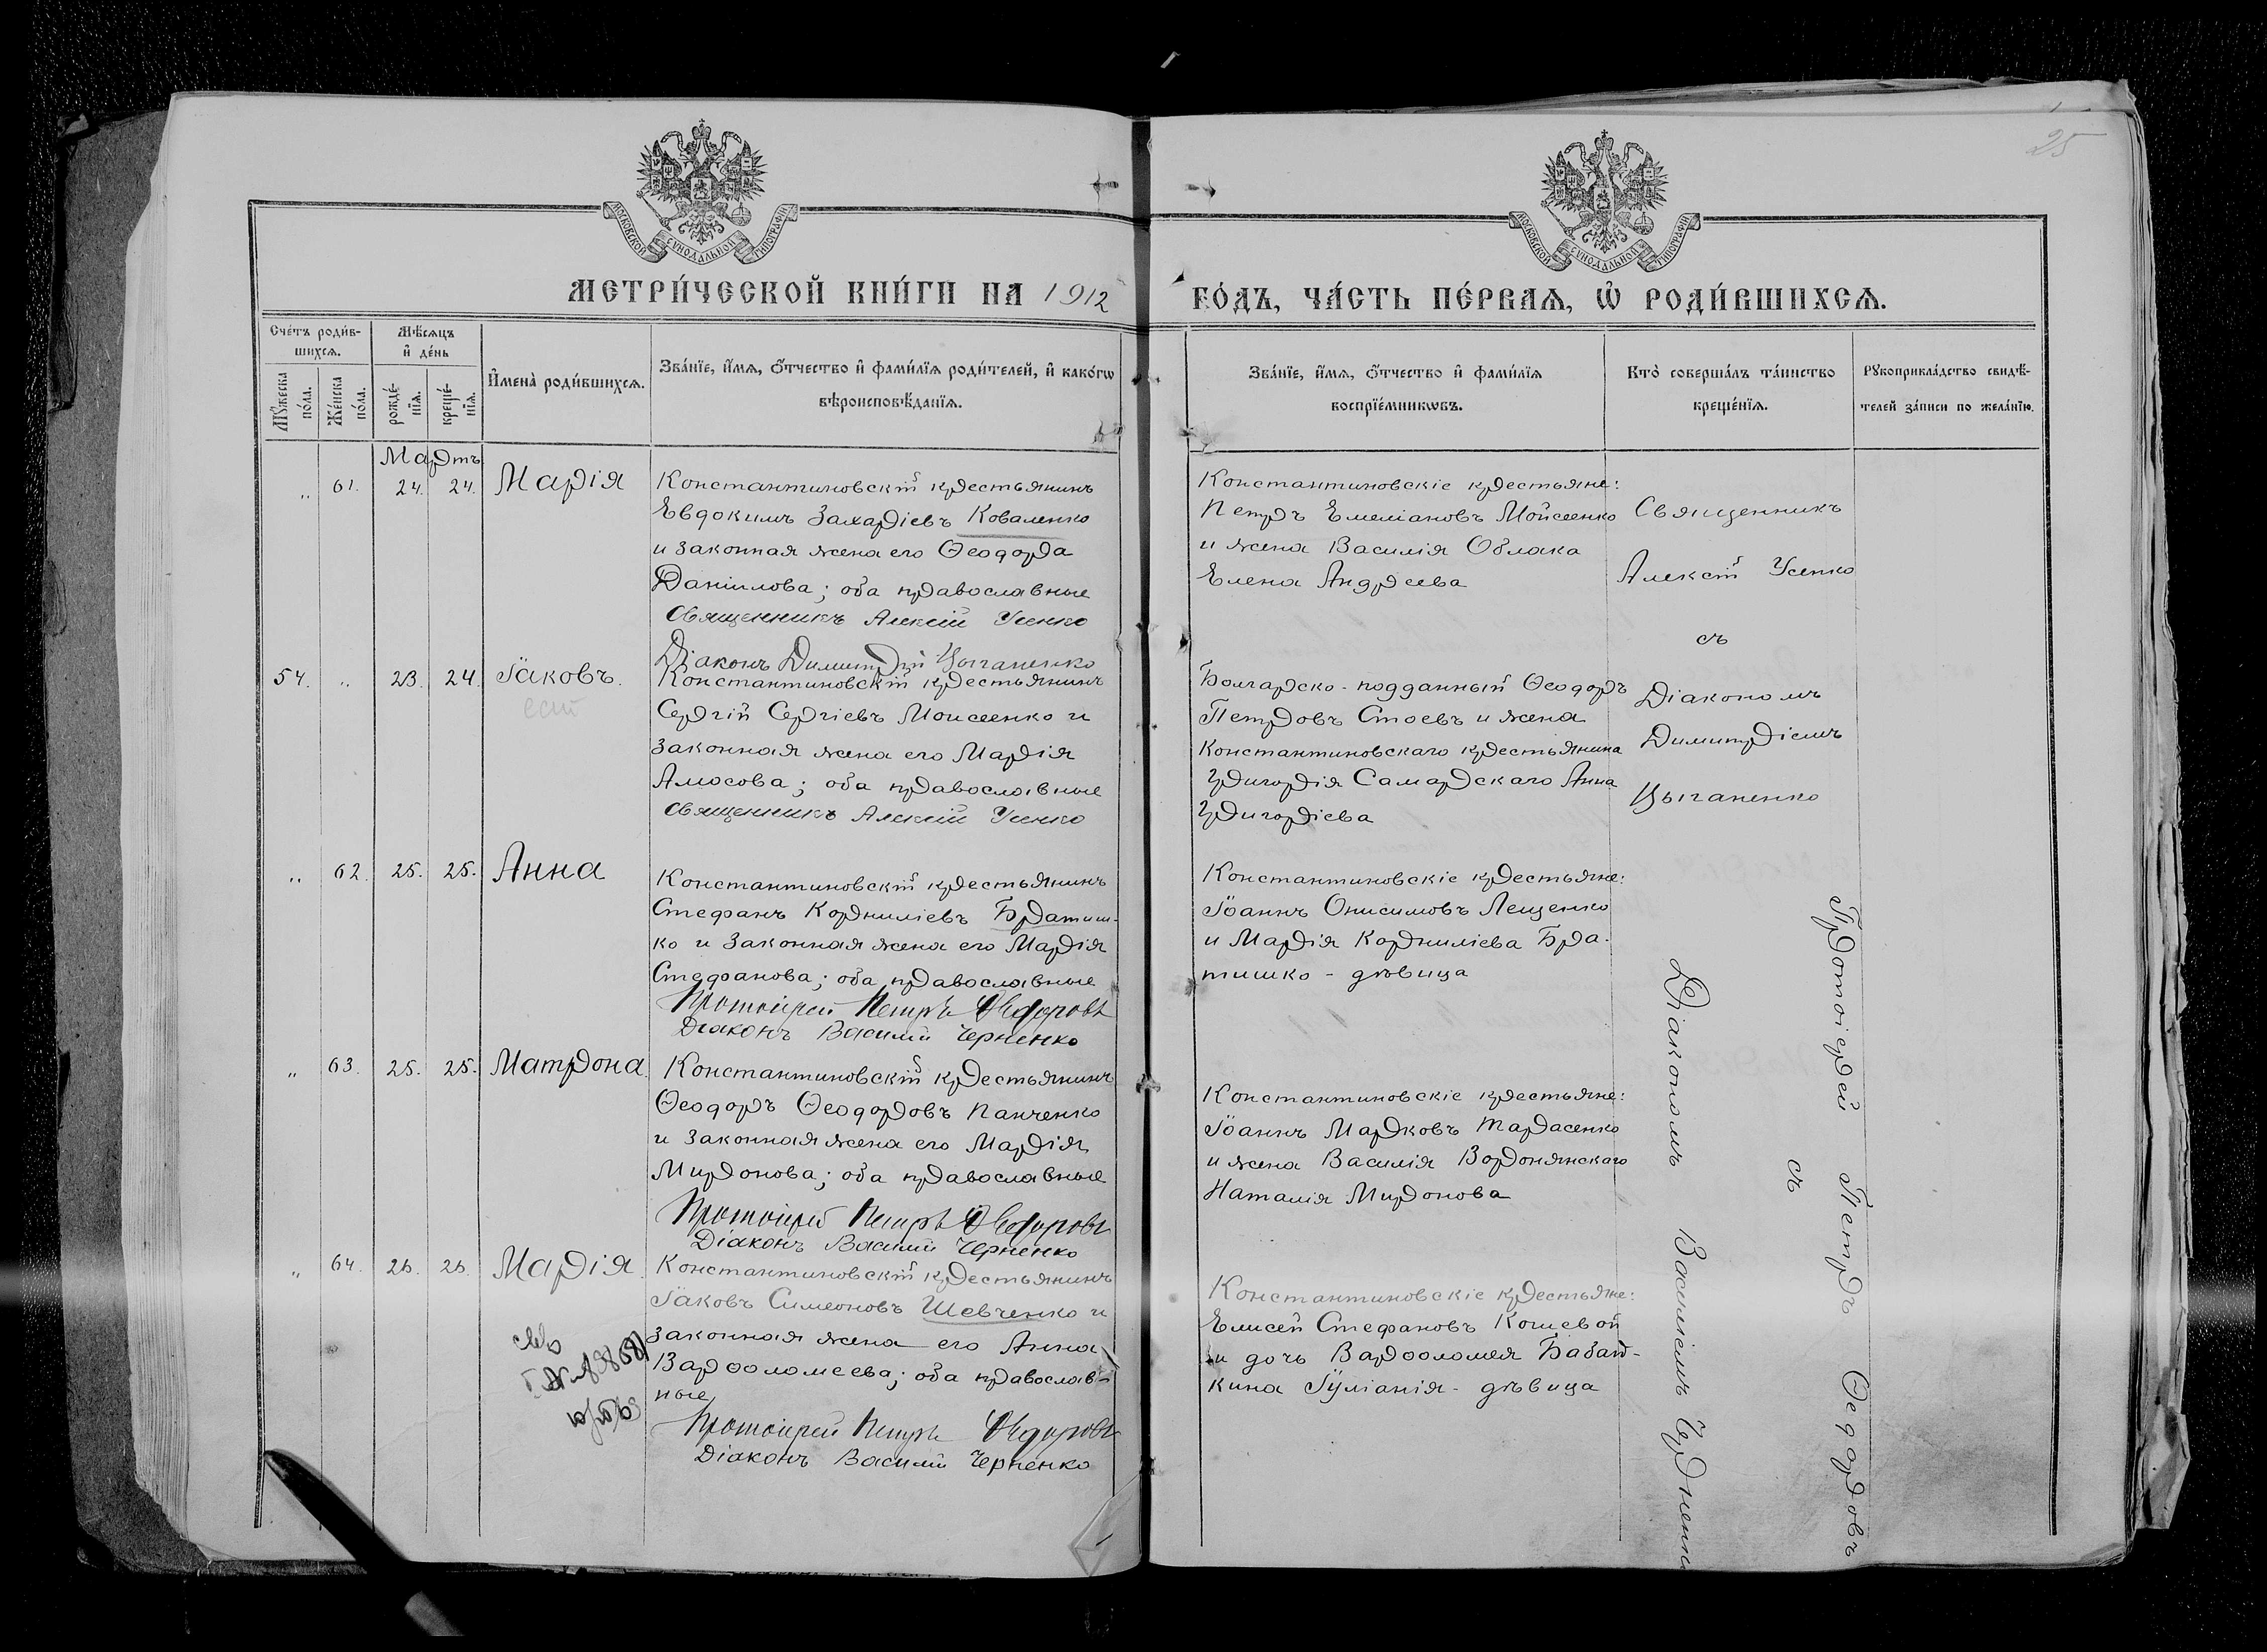 25
МОСКОВСКОЙ СѴНОДАЛЬНОЙ ТИПОГРАФІИ
МОСКОВСКОЙ СѴНОДАЛЬНОЙ ТИПОГРАФІИ
МЕТРИ́ЧЕСКОЙ КНИ́ГИ НА 1912
ГО́ДЪ, ЧА́СТЬ ПЕ́РВАѦ, Ѡ҆ РОДИ́ВШИХСѦ.
Сче́тъ роди́в-
шихсѧ.
Мꙋ́жеска по́ла.
Же́нска по́ла.
Мѣ́сѧцъ
и҆ де́нь
рожде́-
нїѧ.
креще́-
нїѧ.
И҆мена̀ роди́вшихсѧ.
Зва́нїе, и҆́мѧ, ѻ҆́тчество и҆ фами́лїѧ роди́телей, и҆ како́гѡ
вѣроисповѣ́данїѧ.
Зва́нїе, и҆́мѧ, ѻ҆́тчество и҆ фами́лїѧ
воспрїе́мникѡвъ.
Кто̀ соверша́лъ та́инство
креще́нїѧ.
Рꙋкоприкла́дство свидѣ́-
телей за́писи по жела́нїю.
Мартъ
„ 61. 24. 24. Марія
Константиновскій крестьянинъ
Евдокимъ Захаріевъ Коваленко
и законная жена его Ѳеодора
Даніилова; оба православные
Священникъ Алексій Усенко
Діаконъ Димитрій Цыганенко
Константиновскіе крестьяне:
Петръ Емеліановъ Мойсеенко
и жена Василія Облака
Елена Андреева
Священникъ
Алексій Усенко
съ
Діакономъ
Димитріемъ
Цыганенко
54. „ 23. 24. Іаковъ.
Константиновскій крестьянинъ
Сергій Сергіевъ Моисеенко и
законная жена его Марія
Амосова; оба православные
Священникъ Алексій Усенко
Болгарско-подданный Ѳеодоръ
Петровъ Стоевъ и жена
Константиновскаго крестьянина
Григорія Самарскаго Анна
Григоріева
„ 62. 25. 25. Анна
Константиновскій крестьянинъ
Стефанъ Корниліевъ Братиш-
ко и законная жена его Марія
Стефанова; оба православные
Протоіерей Петръ Ѳедоровъ
Діаконъ Василій Черненко
Константиновскіе крестьяне:
Іоаннъ Онисимовъ Лещенко
и Марія Корниліева Бра-
тишко - дѣвица
„ 63. 25. 25. Матрона.
Константиновскій крестьянинъ
Ѳеодоръ Ѳеодоровъ Панченко
и законная жена его Марія
Миронова; оба православные
Протоіерей Петръ Ѳедоровъ
Діаконъ Василій Черненко
Константиновскіе крестьяне:
Іоаннъ Марковъ Тарасенко
и жена Василія Воронянскаго
Наталія Миронова
„ 64. 26. 26. Марія.
Константиновскій крестьянинъ
Іаковъ Симеоновъ Шевченко и
законная жена его Анна
Варѳоломеева; оба православ-
ные
Протоіерей Петръ Ѳедоровъ
Діаконъ Василій Черненко
Константиновскіе крестьяне:
Елисей Стефановъ Кошевой
и дочь Варѳоломея Бабай-
кина Іуліанія - дѣвица
Протоіерей Петръ Ѳедоровъ
съ
Діакономъ Василіемъ Черненко